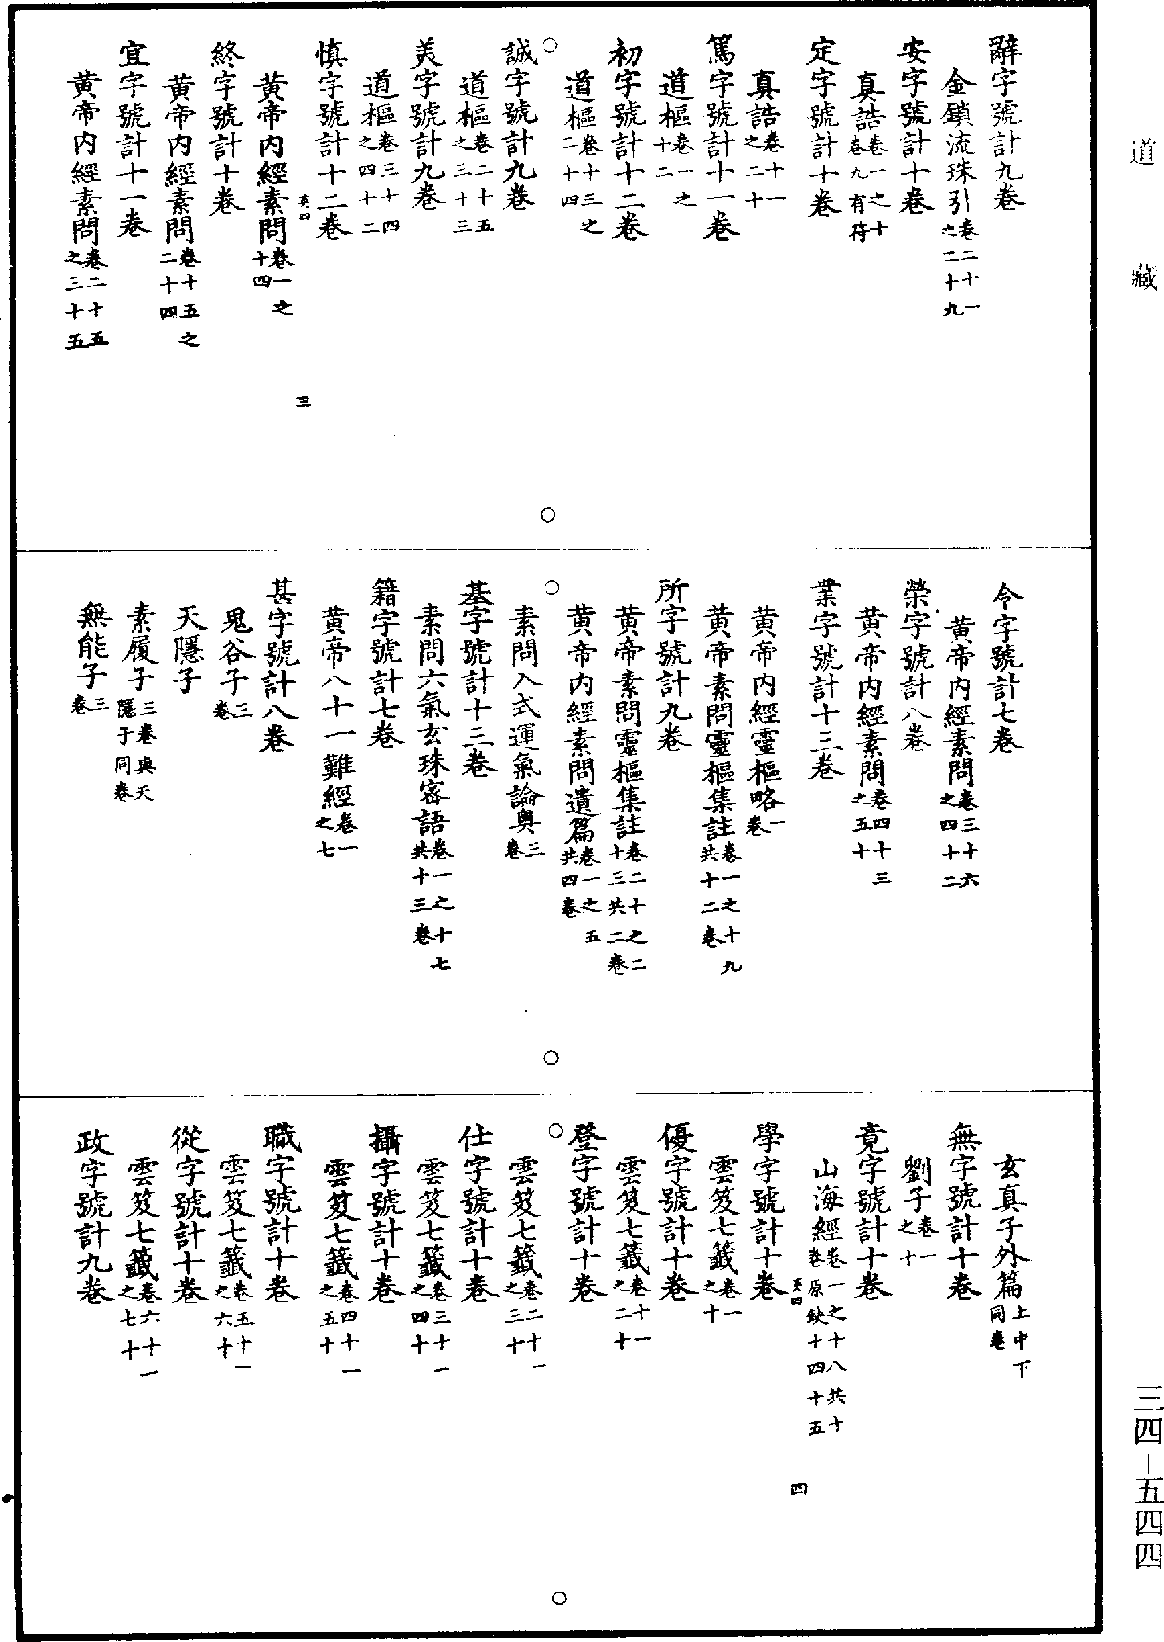 道藏
辭字號計九卷
金鎖流珠引卷二十一之二十九
安字號計十卷
真誥卷一之十卷九有符
定字號計十卷
真誥卷十一之二十
篤字號計十一卷
道樞卷一之十二
初字號計十二卷
道樞卷十三之二十四
誠字號計九卷
道樞卷二十五之三十三
美字號計九卷
道樞卷三十四之四十二
慎字號計十二卷
英四
三
黄帝内經素問卷一之十四
終字號計十卷
黄帝内經素問卷十五之二十四
宜字號計十一卷
黄帝内經素問卷二十五之三十五
令字號計七卷
黄帝内經素問卷三十六之四十二
榮字號計八卷
黄帝内經素問卷四十三之五十
業字號計十三卷
黄帝内經靈樞略一卷
黄帝素問靈樞集註卷一之十九共十二卷
所字號計九卷
黄帝素問靈樞集註卷二十之二十三共二卷
黄帝内經素問遺篇卷一之五共四卷
素問入式運氣論奥三卷
基字號計十三卷
素問六氣玄珠密語卷一之十七共十三卷
籍字號計七卷
黄帝八十一難經卷一之七
甚字號計八卷
鬼谷子三卷
天隱子
素履子三卷與天隱子同卷
無能子三卷
玄真子外篇上中下同卷
無字號計十卷
劉子卷一之十
竟字號計十卷
山海經卷一之十八共十卷原缺十四十五
英四
四
學字號計十卷
雲笈七籤卷一之十
優字號計十卷
雲笈七籤卷十一之二十
登字號計十卷
雲笈七籤卷二十一之三十
仕字號計十卷
雲笈七籤卷三十一之四十
攝字號計十卷
雲笈七籤卷四十一之五十
職字號計十卷
雲笈七籤卷五十一之六十
從字號計十卷
雲笈七籤卷六十一之七十
政字號計九卷
三四—五四四